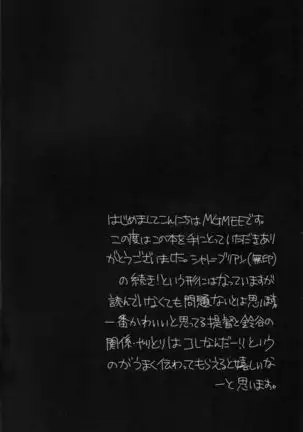 はじめましてこんにちはMGMEEです。
この度はこの本を手にとっていただきあり
がとうございました。シャトーブリアン(無印)
の続き!という形にはなっていますが
読んでいなくても問題ないとは思います
一番かわいいと思ってる提督と鈴谷の
関係・やりとりはコレなんだー!!という
のがうまく伝わってもらえると嬉しいな
ーと思います。